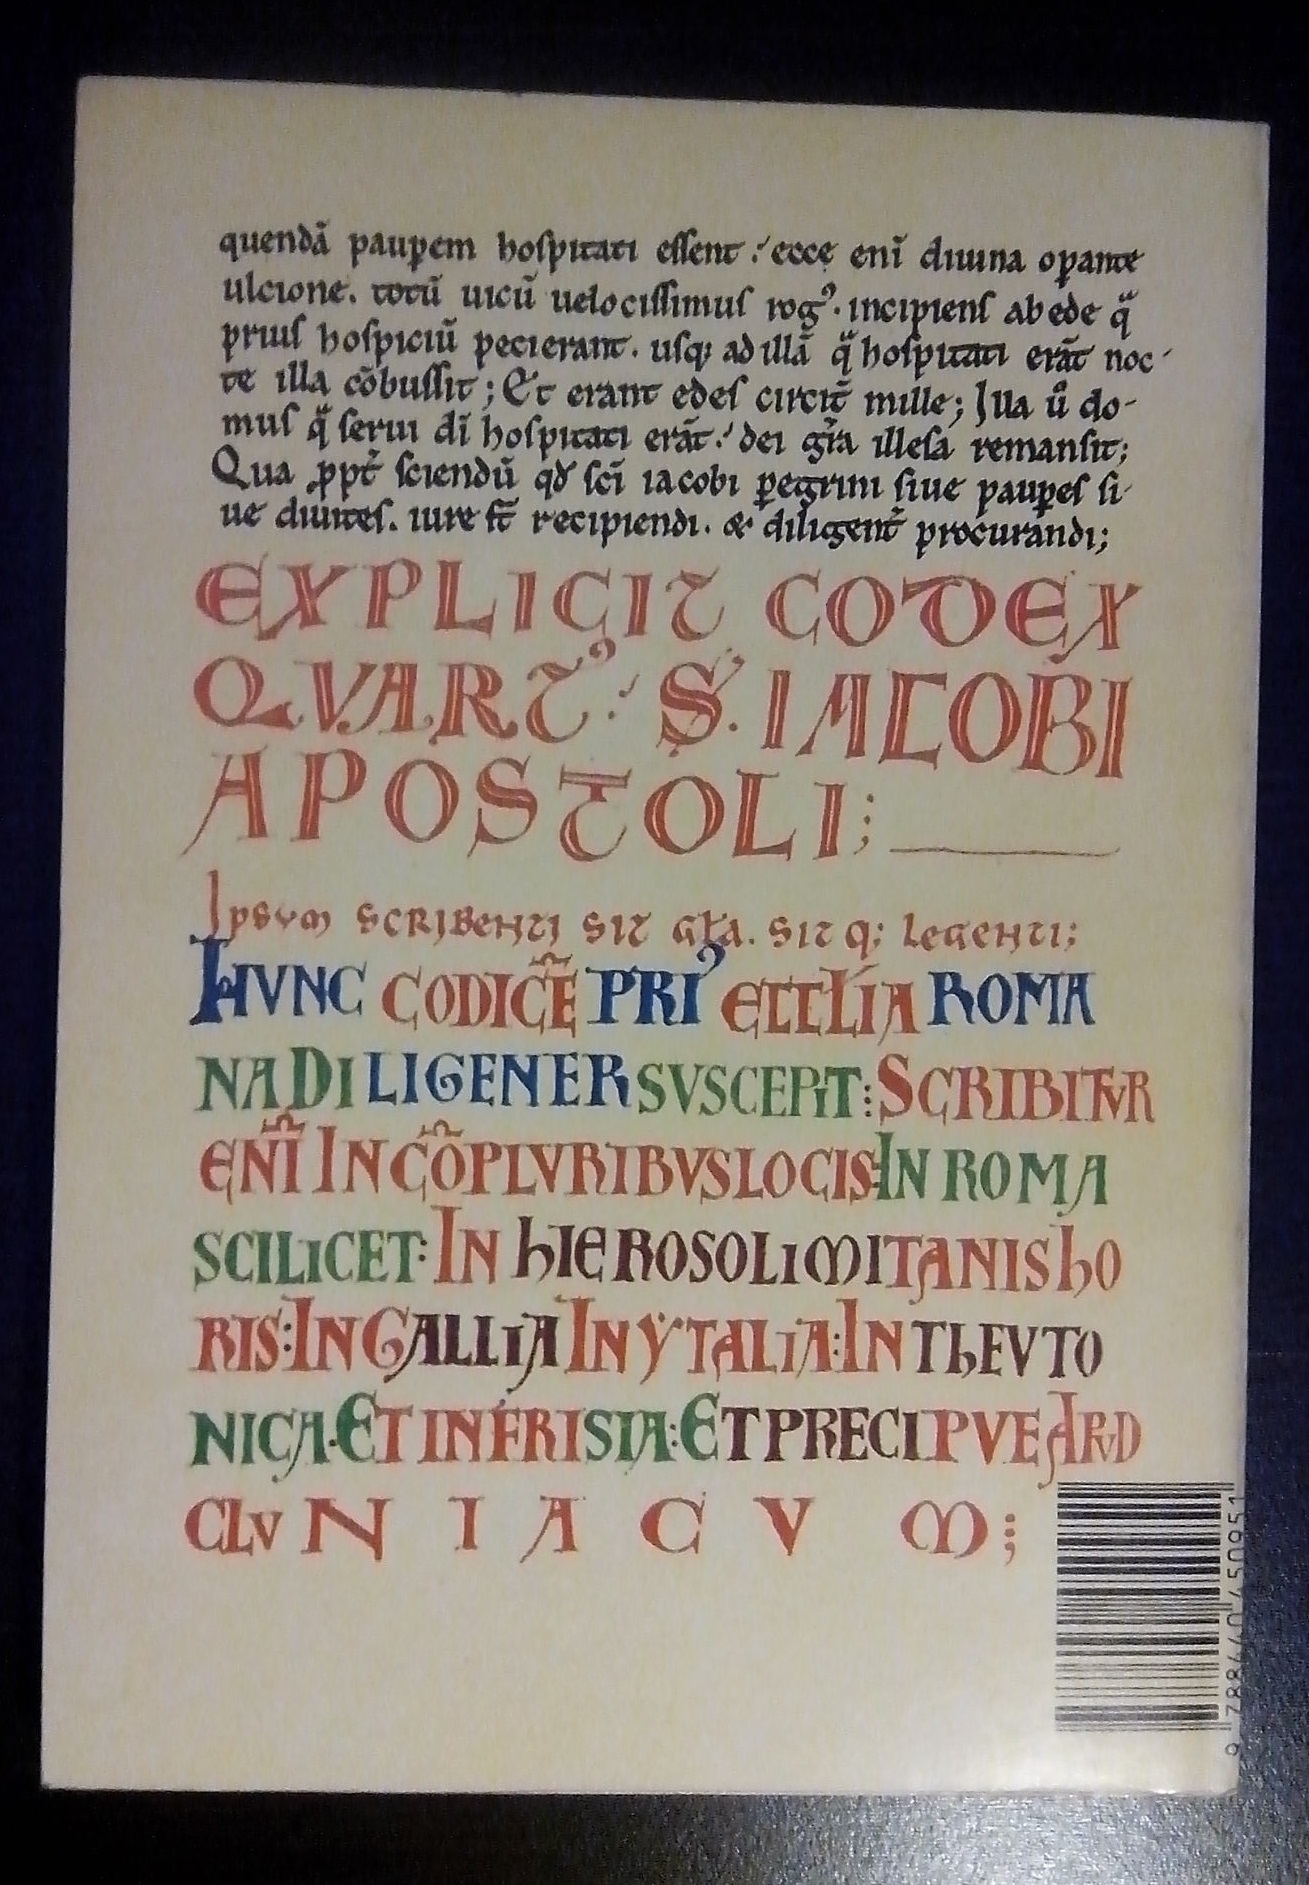 quendā paupem hospitati essent : ecce enī diuina opante
ulcione. totū uicū uelocissimus rogꝰ. incipiens ab ede q̄
prius hospiciū pecierant. usq; ad illā q̄ hospitati erāt noc
te illa cōbussit; Et erant edes circit̄ mille; Illa ū do-
mus q̄ serui dī hospitati erāt : dei gr̄a illesa remansit;
Qua ꝓpt̄ sciendū qd̄ sc̄i iacobi ꝑegrini siue pauꝑes si-
ue diuites. iure st̄ recipiendi. & diligent̄ procurandi;
EXPLICIT CODEX
QVARTꝰ : S. IACOBI
APOSTOLI;
Ipsum scribenti sit gl̄a. sit q; legenti;
HVNC CODICĒ PRIꝰ ECCL̄IA ROMA
NA DILIGENER SVSCEPIT : SCRIBITVR
ENĪ IN CŌPLVRIBVS LOCIS : IN ROMA
SCILICET : IN HIEROSOLIMITANIS HO
RIS : IN GALLIA IN YTALIA : IN THEVTO
NICA . ET IN FRISIA : ET PRECIPVE APVD
CLVNIACVM;
9 788440 450951